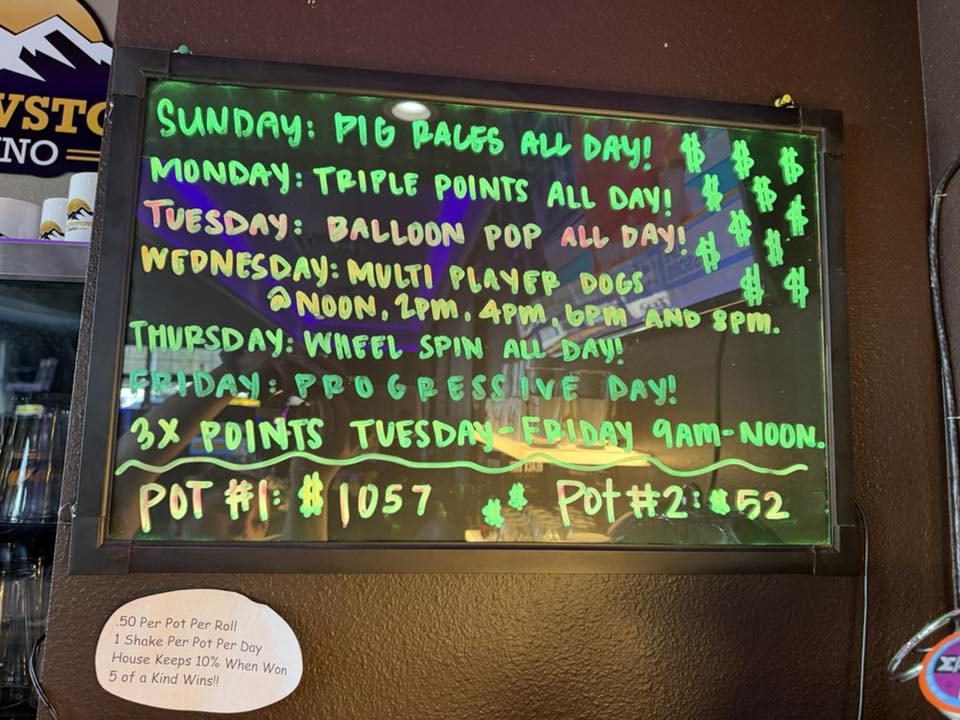 SUNDAY: PIG RACES ALL DAY!
MONDAY: TRIPLE POINTS ALL DAY!
TUESDAY: BALLOON POP ALL DAY!
WEDNESDAY: MULTI PLAYER DOGS
@NOON, 2PM, 4PM, 6PM AND 8PM.
THURSDAY: WHEEL SPIN ALL DAY!
FRIDAY: PROGRESSIVE DAY!
3X POINTS TUESDAY-FRIDAY 9AM-NOON.
POT #1: $1057 $$ Pot #2: $52
.50 Per Pot Per Roll
1 Shake Per Pot Per Day
House Keeps 10% When Won
5 of a Kind Wins!!